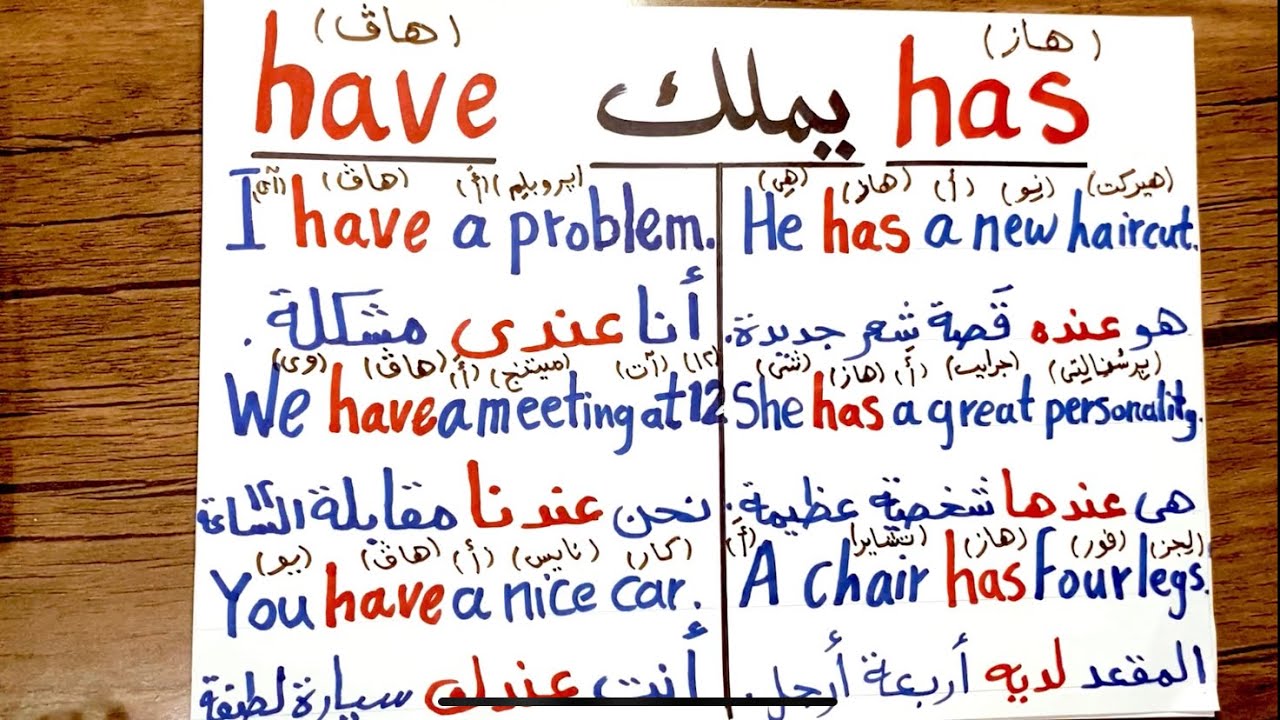 (هاڤ) (هاز)
have يملك has
(آى) (هاڤ) (أ) (ابروبليم)
I have a problem.
أنا عندى مشكلة .
(وى) (هاڤ) (أ) (ميتنج) (آت) (١٢)
We have a meeting at 12
نحن عندنا مقابلة الساعة ١٢
(يو) (هاڤ) (أ) (نايس) (كار)
You have a nice car.
أنت عندك سيارة لطيفة
(هى) (هاز) (أ) (نيو) (هيركت)
He has a new haircut.
هو عنده قَصة شعر جديدة.
(شى) (هاز) (أ) (جرايت)
She has a great personality.
هى عندها شخصية عظيمة.
(أ) (هاز) (فور) (ليجز)
A chair has Four legs.
المقعد لديه أربعة أرجل.